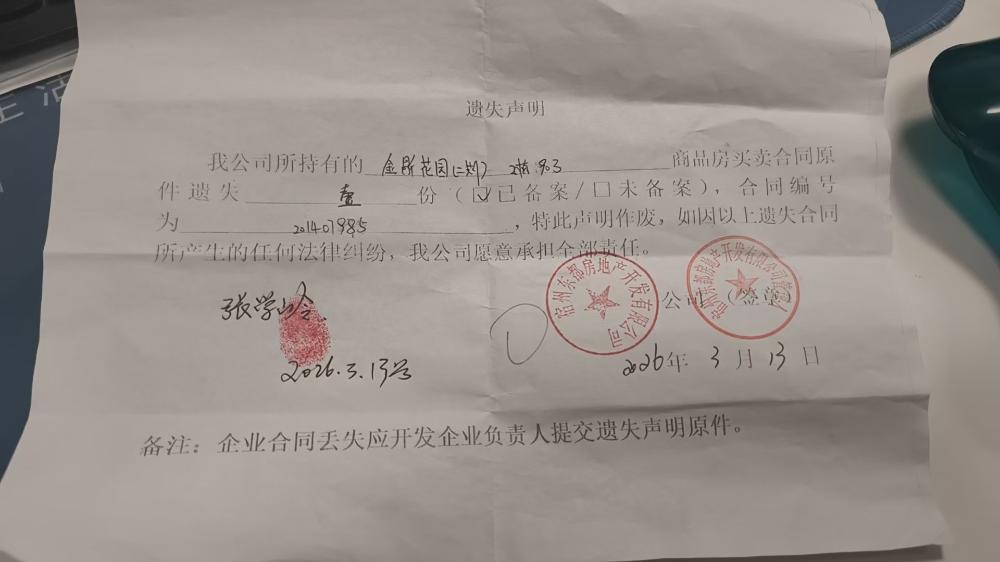 生活
遗失声明
我公司所持有的 金彤花园(二期) 2幢903 商品房买卖合同原
件遗失 壹 份（☑已备案/☐未备案），合同编号
为 201407985 ，特此声明作废，如因以上遗失合同
所产生的任何法律纠纷，我公司愿意承担全部责任。
宿州东都房地产开发有限公司
宿州东都房地产开发有限公司管理人
公司（签章）
张学
2026.3.13号
2026年 3 月 13 日
备注：企业合同丢失应开发企业负责人提交遗失声明原件。